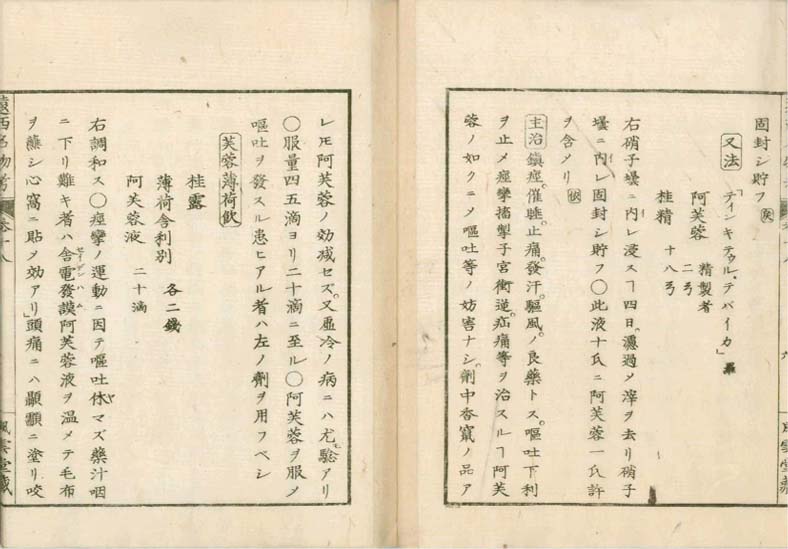 固封シ貯フ
又法
「ティンキテゥル、テバイカ」羅
阿芙蓉 精製者 二弓
桂精 十八弓
右硝子壜ニ内レ浸スヿ四日。濾過〆滓ヲ去リ硝子
壜ニ内レ固封シ貯フ〇此液十氏ニ阿芙蓉一氏許
ヲ含メリ
主治 鎮痙。催睡。止痛。發汗。驅風。ノ良藥トス。嘔吐下利
ヲ止メ痙攣搐掣子宮衝逆。疝痛等ヲ治スルヿ阿芙
蓉ノ如クニ〆嘔吐等ノ妨害ナシ。劑中杏竄ノ品ア
レ𪜈阿芙蓉ノ効減セズ。又虚冷ノ病ニハ尤モ驗アリ
〇服量四五滴ヨリ二十滴ニ至ル〇阿芙蓉ヲ服〆
嘔吐ヲ發スル患ヒアル者ハ左ノ劑ヲ用フベシ
芙蓉薄荷飲
桂露
薄荷舎利別 各二錢
阿芙蓉液 二十滴
右調和ス〇痙攣ノ運動ニ因テ嘔吐休マズ藥汁咽
ニ下リ難キ者ハ舎電發謨阿芙蓉液ヲ温メテ毛布
ヲ蘸シ心窩ニ貼〆効アリ」頭痛ニハ顳顬ニ塗リ咬
遠西名物考
巻十八
風雲堂蔵